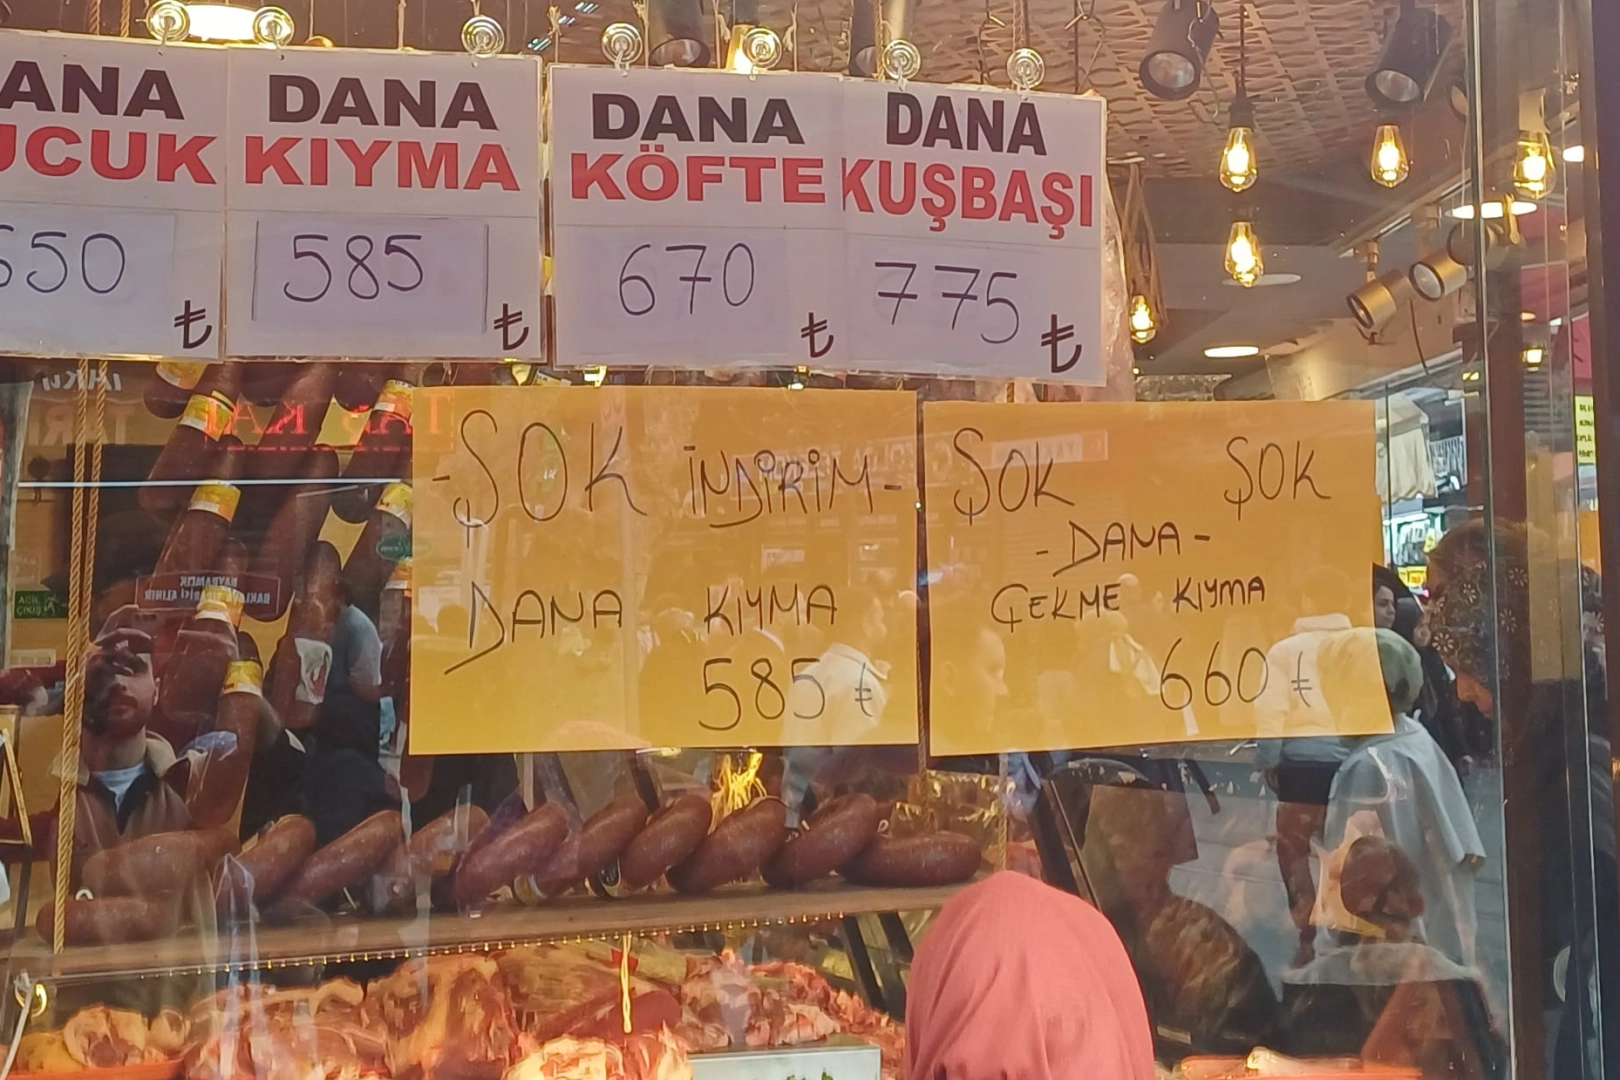 DANA
KIYMA
585
₺
DANA
KÖFTE
670
₺
DANA
KUŞBAŞI
775
₺
-ŞOK İNDİRİM-
DANA KIYMA
585 ₺
ŞOK ŞOK
-DANA-
ÇEKME KIYMA
660 ₺
ACİL
ÇIKIŞ